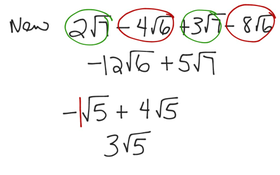 New 2√7 - 4√6 + 3√7 - 8√6
-12√6 + 5√7
-1√5 + 4√5
3√5